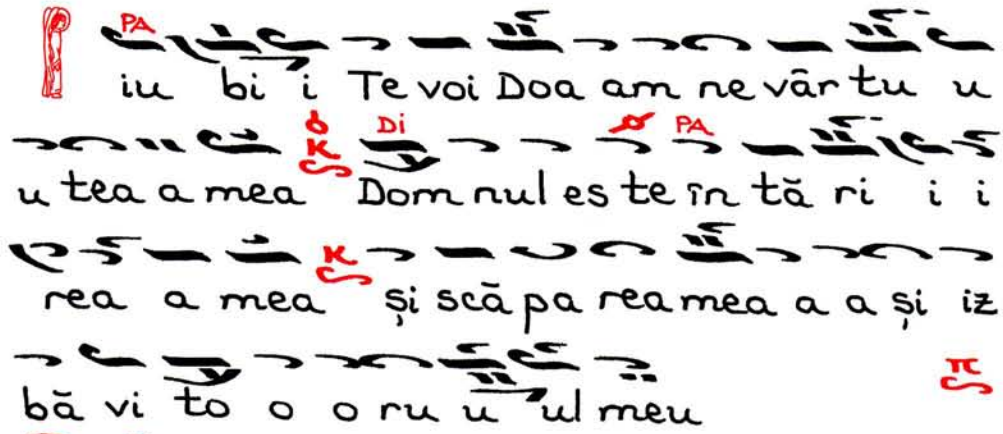 PA
iu bi i Te voi Doa am ne vâr tu u
Di PA
u tea a mea Dom nul es te în tă ri i i
rea a mea și scă pa rea mea a a și iz
bă vi to o o ru u ul meu